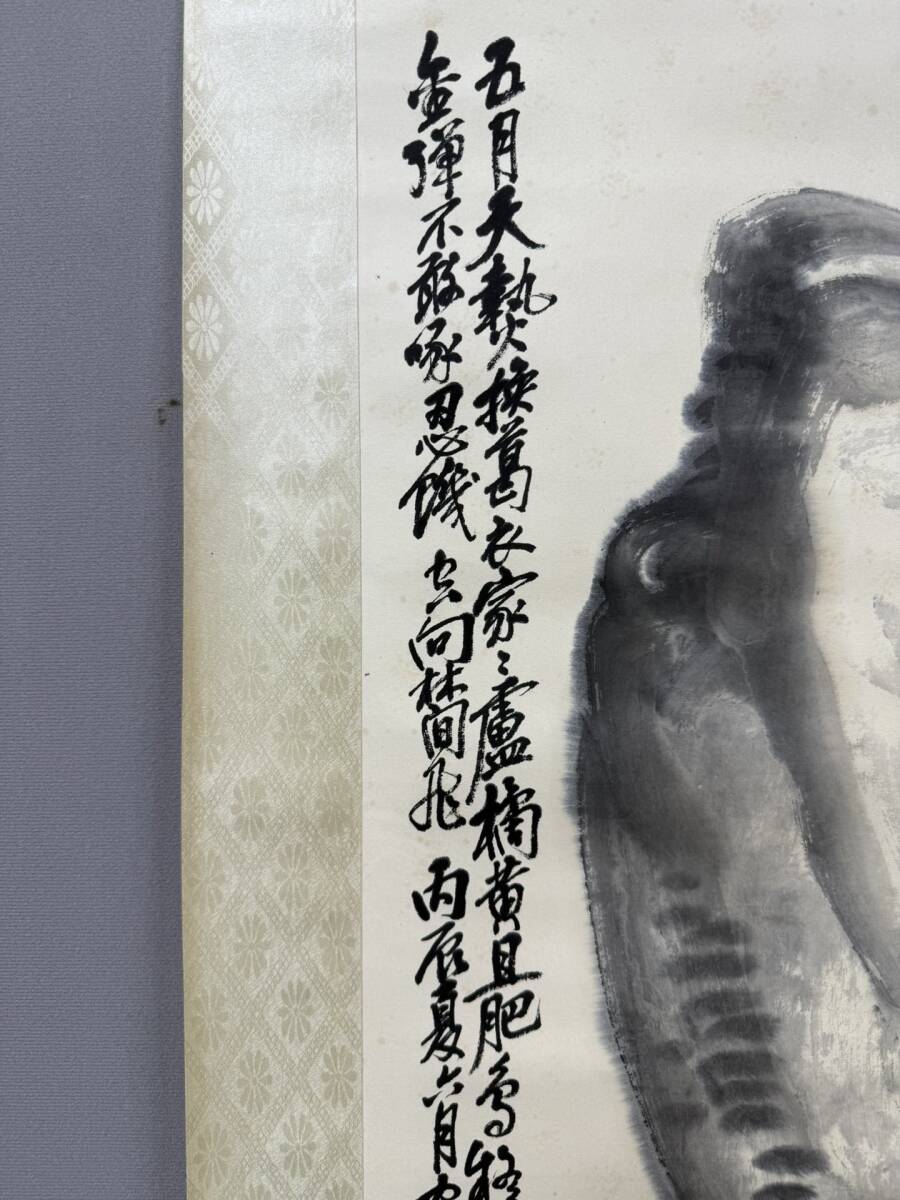 五月天熱換葛衣家〻盧橘黃且肥鳥
金彈不敢啄忍饑空向林間飛 丙辰夏六月